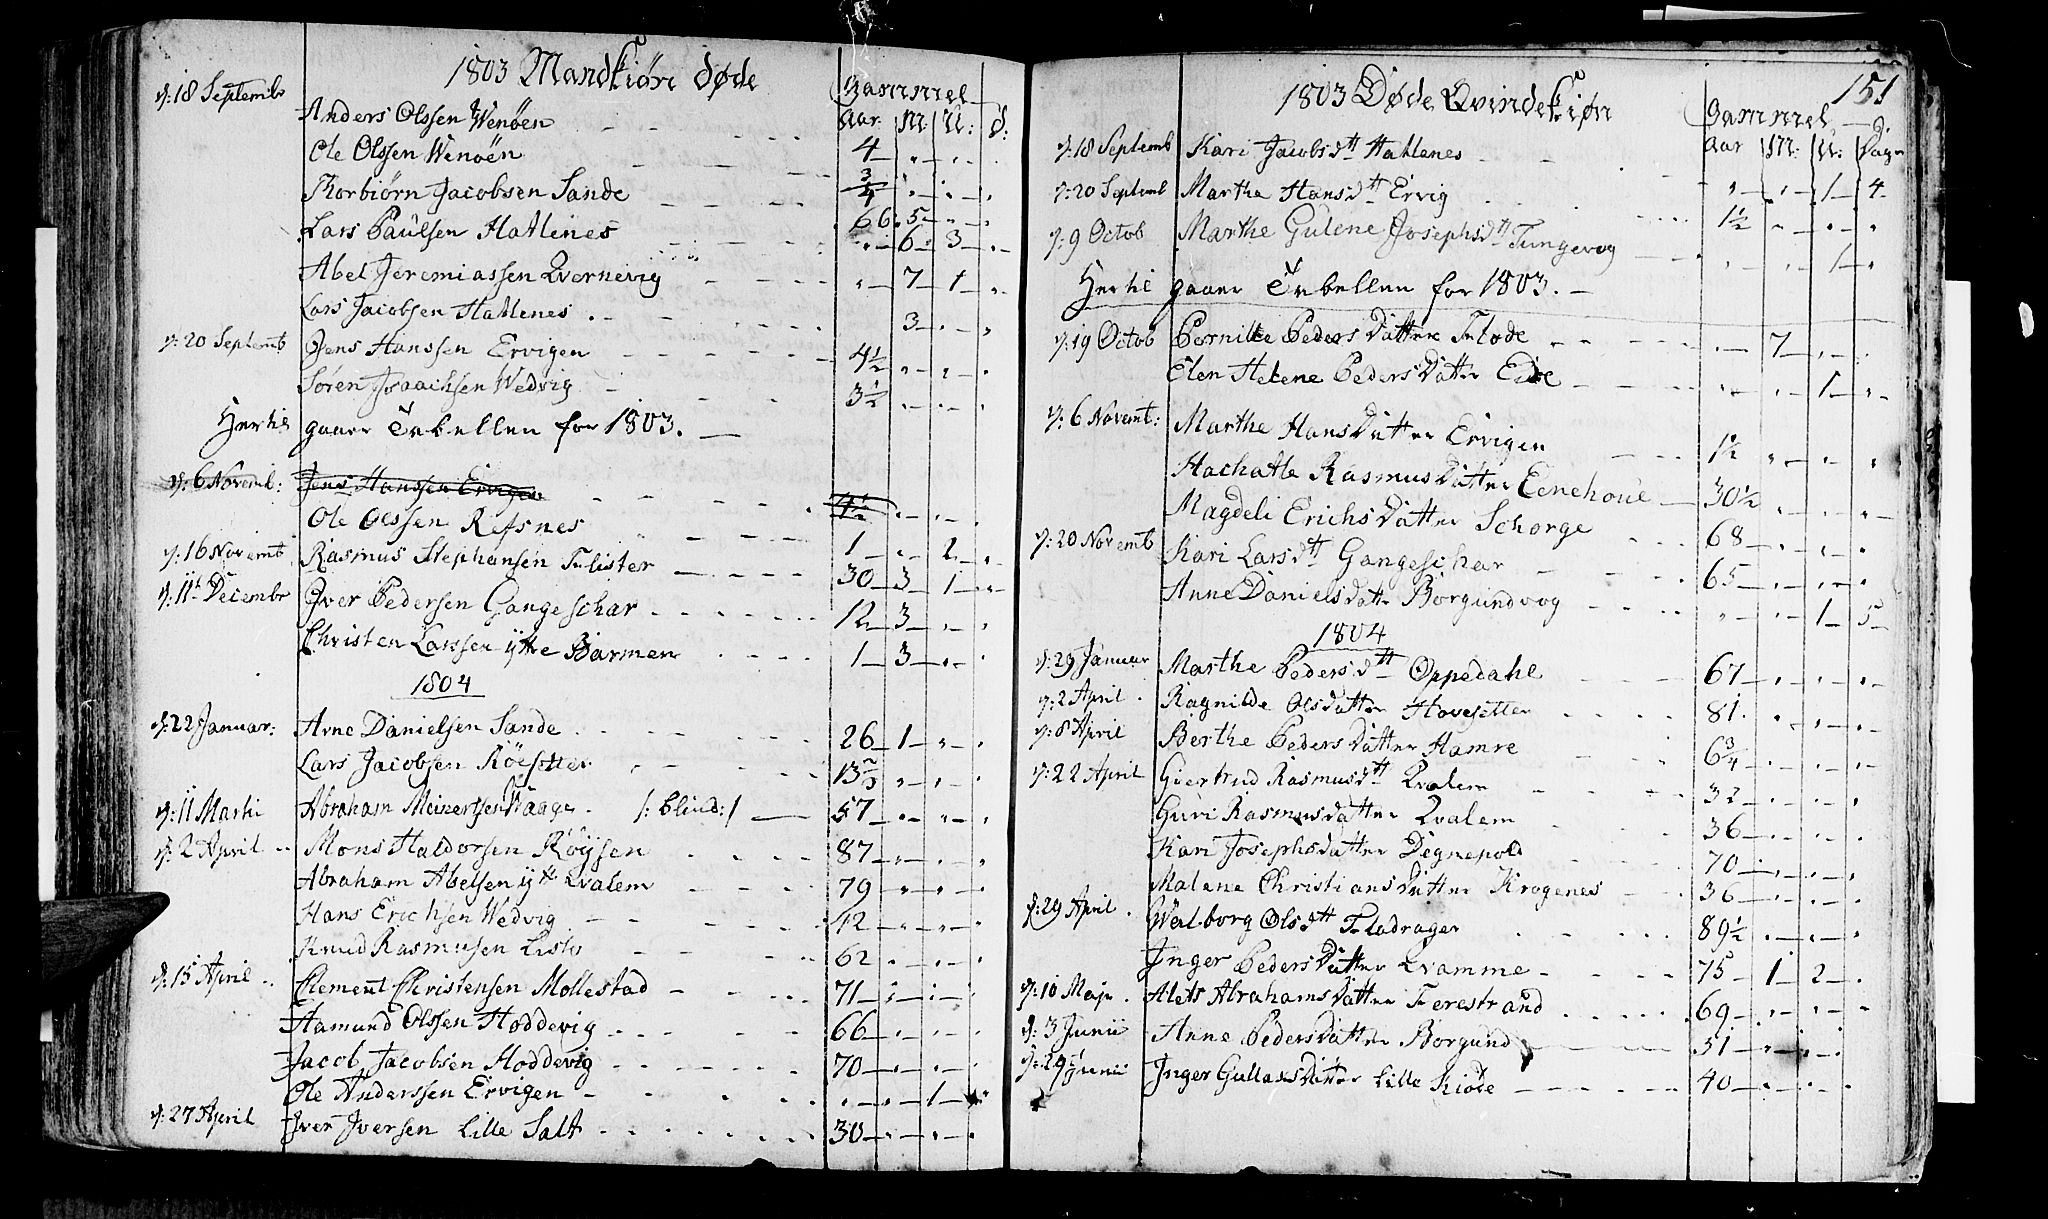 1803 Mandkiøn døde
Gammel
Aar. M: U: d:
d: 18 Septembr Anders Olssen Wenöen 4
Ole Olssen Wenöen 3/4
Thorbiørn Jacobsen Sande 66. 5
Lars Paulsen Hatlenes 6 3
Abel Jeremiassen Qvernevig 7 1
Lars Jacobsen Hatlenes 3
d: 20 Septemb Jens Hanssen Ervigen 4 1/2
Søren Isaachsen Wedvig 3 1/2
Hertil gaaer Tabellen for 1803.
d: 6 Novemb: Jens Hanssen Ervigen 4 1/2
Ole Olssen Refsnes 1 2
d: 16 Novembr Rasmus Stephansen Fulister 30 3 1
d: 11te Decembr Iver Pedersen Gangeschar 12 3
Christen Larssen ÿttre Barmen 1 3
1804
d: 22 Januar: Arne Danielsen Sande 26 1
Lars Jacobsen Röisetter 13
d: 11 Martii Abraham Meinertsen Waage /: blind:/ 57
d: 2 April Mons Haldorsen Röÿsen 87
Abraham Abelsen ÿttre Qvalem 79
Hans Erichsen Wedvig 42
Knud Rasmusen Listo 62
d: 15 April Clement Christensen Mollestad 71
Hamund Olssen Hoddevig 66
Jacob Jacobsen Hoddevig 70
Ole Anderssen Ervigen 1
d: 27 April Iver Iversen Lille Salt 30
151
1803 Døde Qvindekiøn
Gammel
Aar M: U: Dage
d: 18 Septemb Kari Jacobsdtt Hatlenes 1 4
d: 20 Septemb Marthe Hansdtt Ervig 1 1/2
d: 9 Octob Marthe Gulene Josephsdtt Tungevog 1
Hertil gaaer Tabellen for 1803.
d: 19 Octob Pernille Peders Datter Flode 7
Elen Helene Peders Datter Eide 1
d: 6 Novemb: Marthe Hans Datter Ervigen 1 1/2
Hachatle Rasmus Datter Eenehoue 30 1/2
Magdeli Erichs Datter Schorge 68
d: 20 Novemb Kari Larsdtt Gangeschar 65
Anne Daniels datter Borgundvog 1 5
1804
d: 29 Januar Marthe Pedersdtt Oppedahl 67
d: 2 April Ragnilde Olsdatter Hovesetter 81.
d: 8 April Berthe Peders Datter Hamre 6 3/4
d: 22 April Giertrud Rasmusdtt Qvalem 32
Guri Rasmusdatter Qvalem 36
Kari Josephsdatter Degnepold 70
Malene Christians Datter Krogenes 36
d: 29 April Walborg Olsdtt Fladrager 89 1/2
Inger Peders Datter Qvamme 75 1 2
d: 10 Maji Alets Abrahams Datter Ferestrand 69
d: 3 Junii Anne Peders Datter Borgund 31
d: 29 Junii Inger Gullaks Datter Lille Kiøde 40